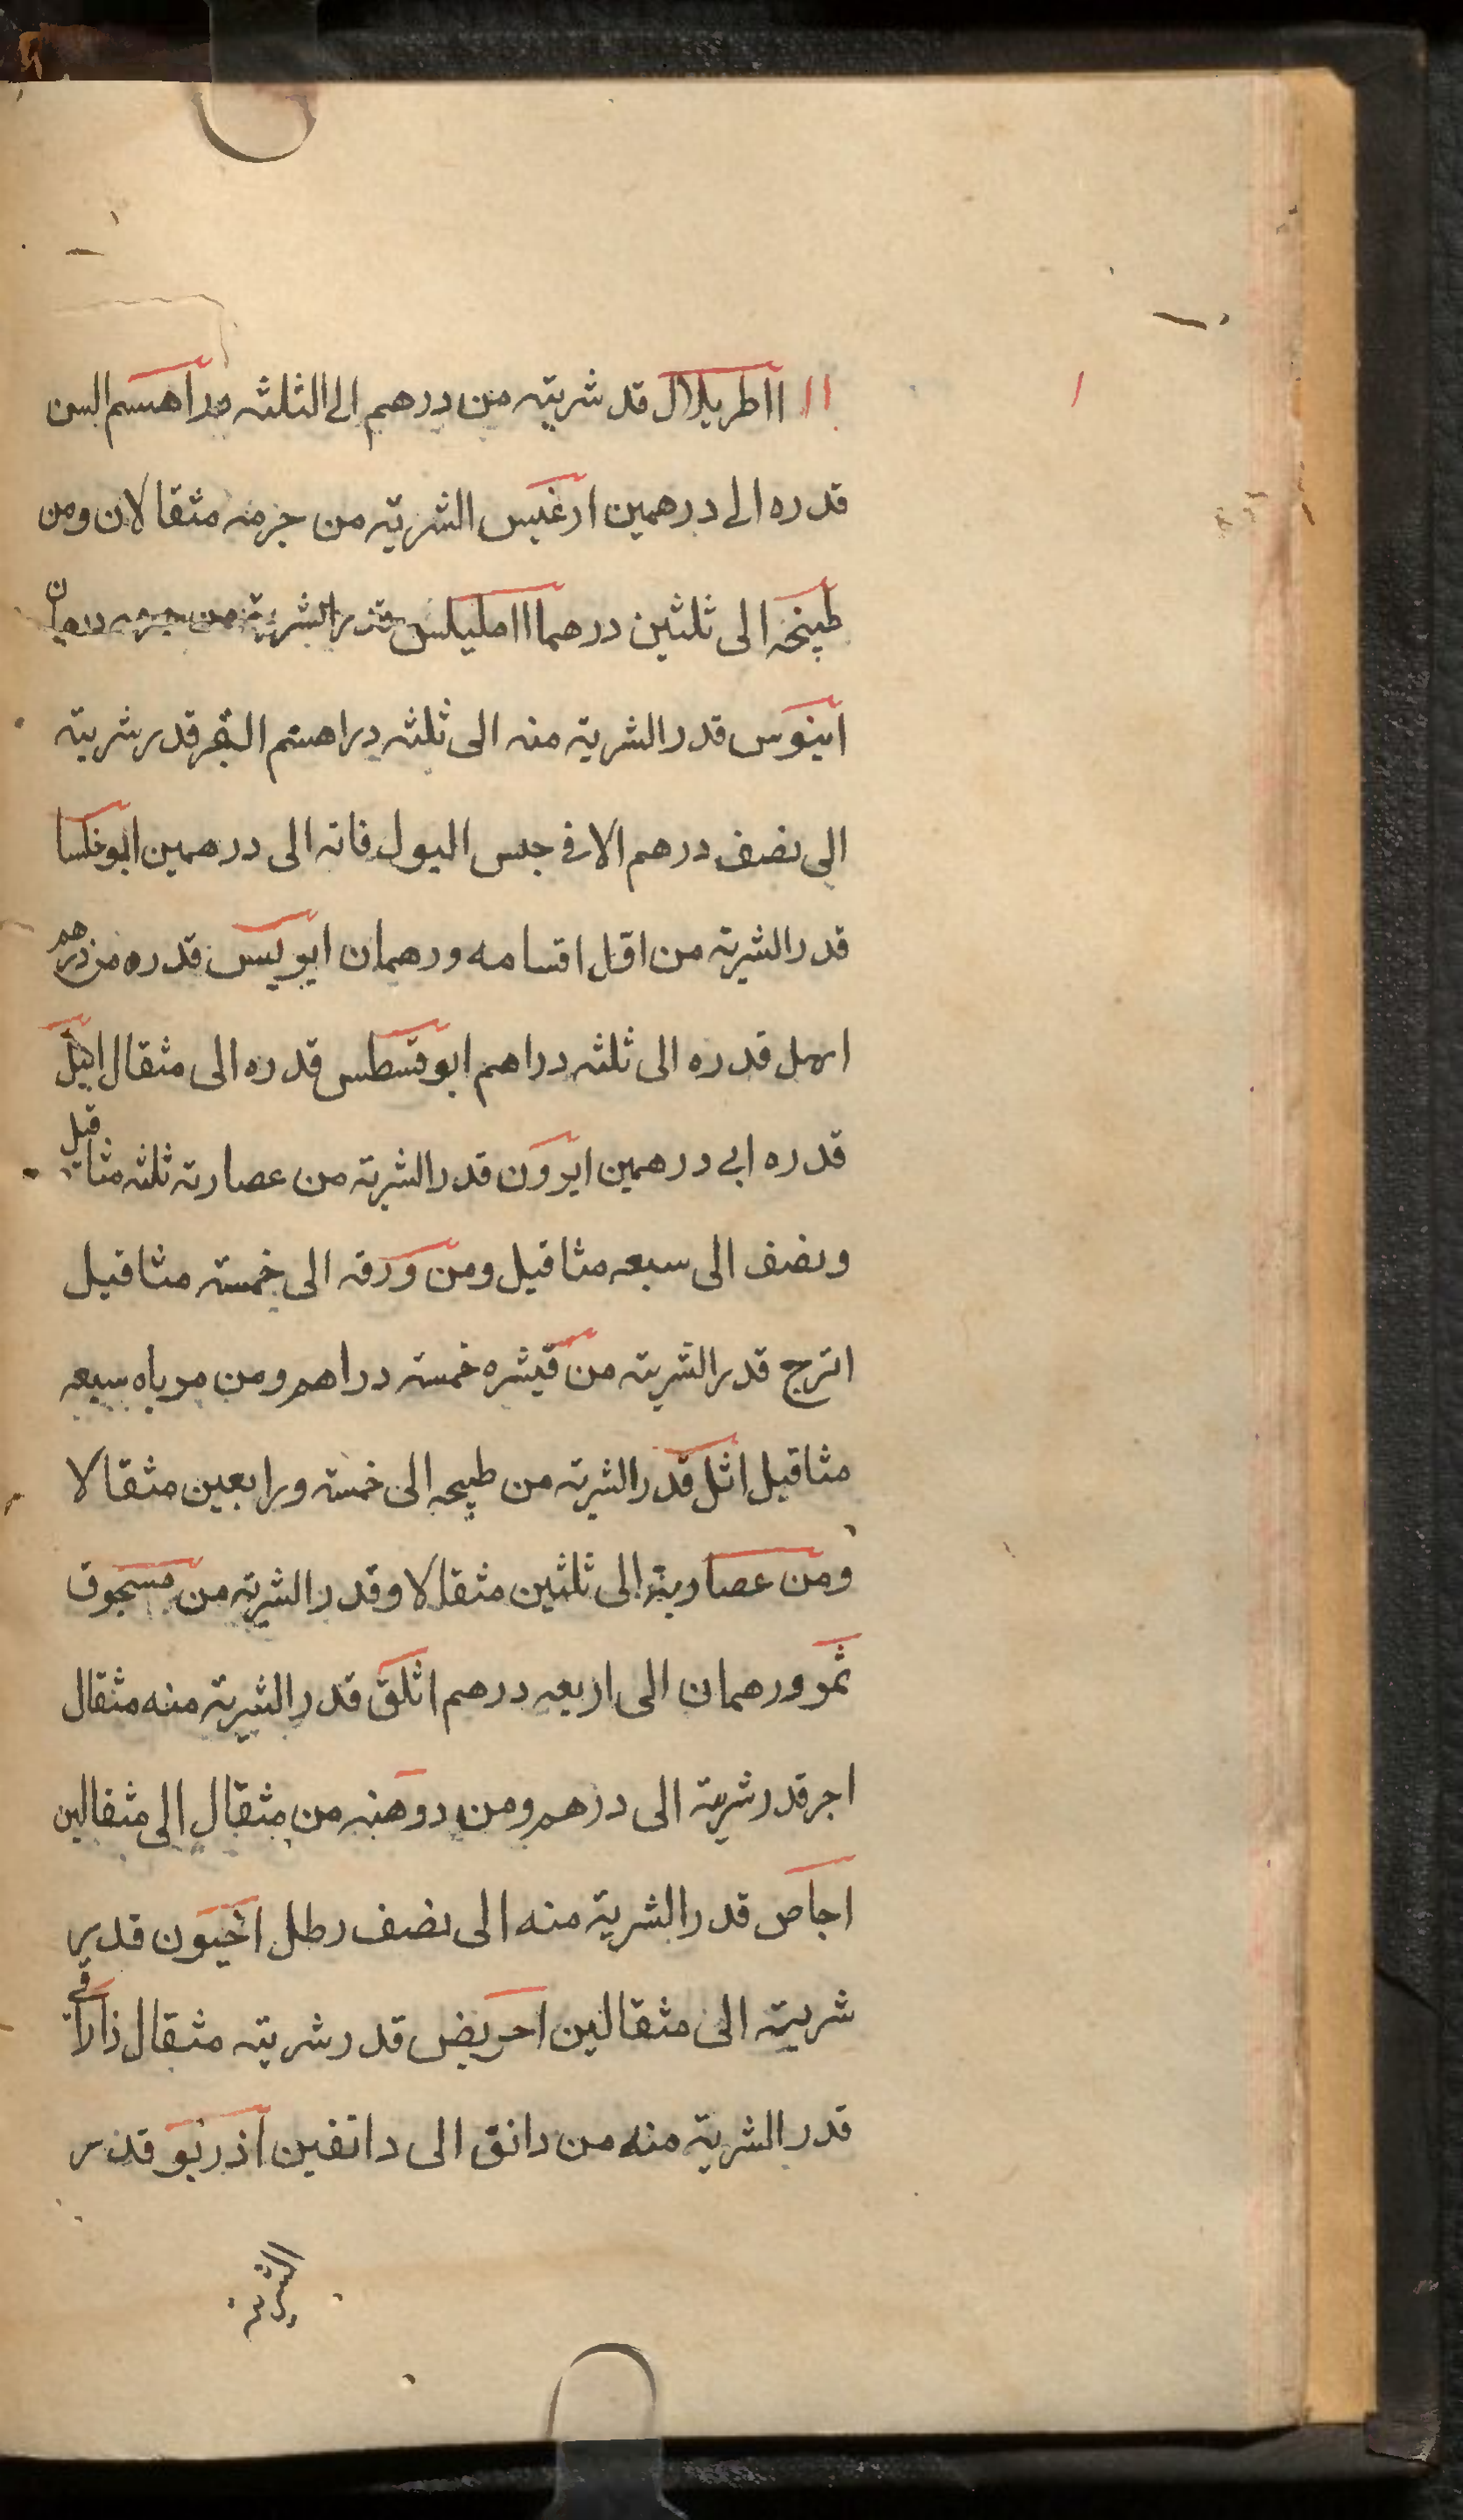 ااطريلال قد شربته من درهم الى الثلثه دراهم السن
قدره الى درهمين ارغيس الشربة من جرمه مثقالان ومن
طبخه الى ثلثين درهما ااملليس قدر الشربة من جرمه درهمان
ابنوس قدر الشربة منه الى ثلثه دراهم القر قدر شربته
الى نصف درهم الا فى حبس البول فانه الى درهمين ابوخلسا
قدر الشربة من اقل اقسامه ورهمان ابوليس قدره من درهم
ابهل قدره الى ثلثه دراهم ابوقسطس قدره الى مثقال ابيل
قدره الى درهمين ابرون قدر الشربة من عصارته ثلثه مثاقيل
ونصف الى سبعه مثاقيل ومن ورقه الى خمسة مثاقيل
اترج قدر الشربة من قيشره خمسة دراهم ومن مرباه سبعه
مثاقيل اثل قدر الشربة من طبيخه الى خمسة ورابعين مثقالا
ومن عصاربته الى ثلثين مثقالا وقدر الشربة من مسحوق
ثمر ورهمان الى اربعه درهم اثلق قدر الشربة منه مثقال
اجر قدر شربته الى درهم ومن دوهنه من مثقال الى مثقالين
اجاص قدر الشربة منه الى نصف رطل اخيون قدر
شربته الى مثقالين احريض قدر شربته مثقال ذاراقى
قدر الشربة منه من دانق الى دانقين اذربو قدر
الشربة